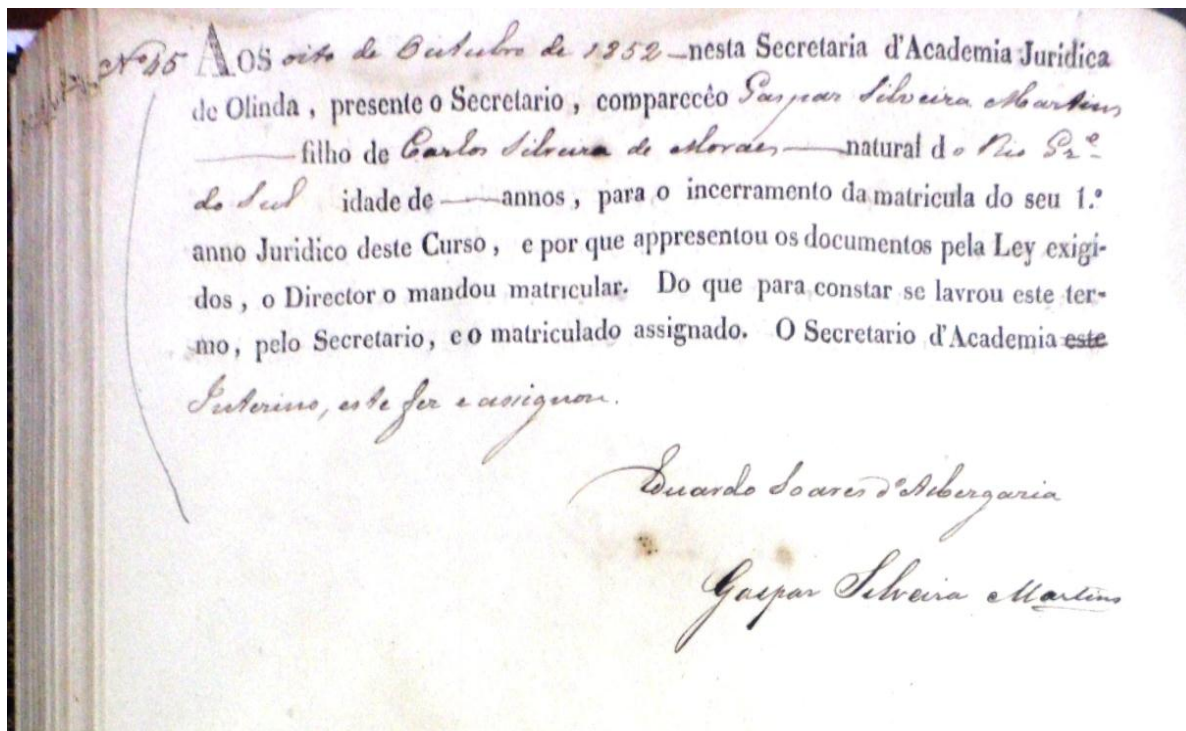 Nº 45 AOS oito de Outubro de 1852 — nesta Secretaria d'Academia Juridica
de Olinda, presente o Secretario, comparecêo Gaspar Silveira Martins
— filho de Carlos Silveira de Moraes — natural do Rio Grᵉ
do Sul idade de — annos, para o incerramento da matricula do seu 1.º
anno Juridico deste Curso, e por que appresentou os documentos pela Ley exigi-
dos, o Director o mandou matricular. Do que para constar se lavrou este ter-
mo, pelo Secretario, e o matriculado assignado. O Secretario d'Academia este
Interino, este fez e assignou.
Eduardo Soares d'Albergaria
Gaspar Silveira Martins